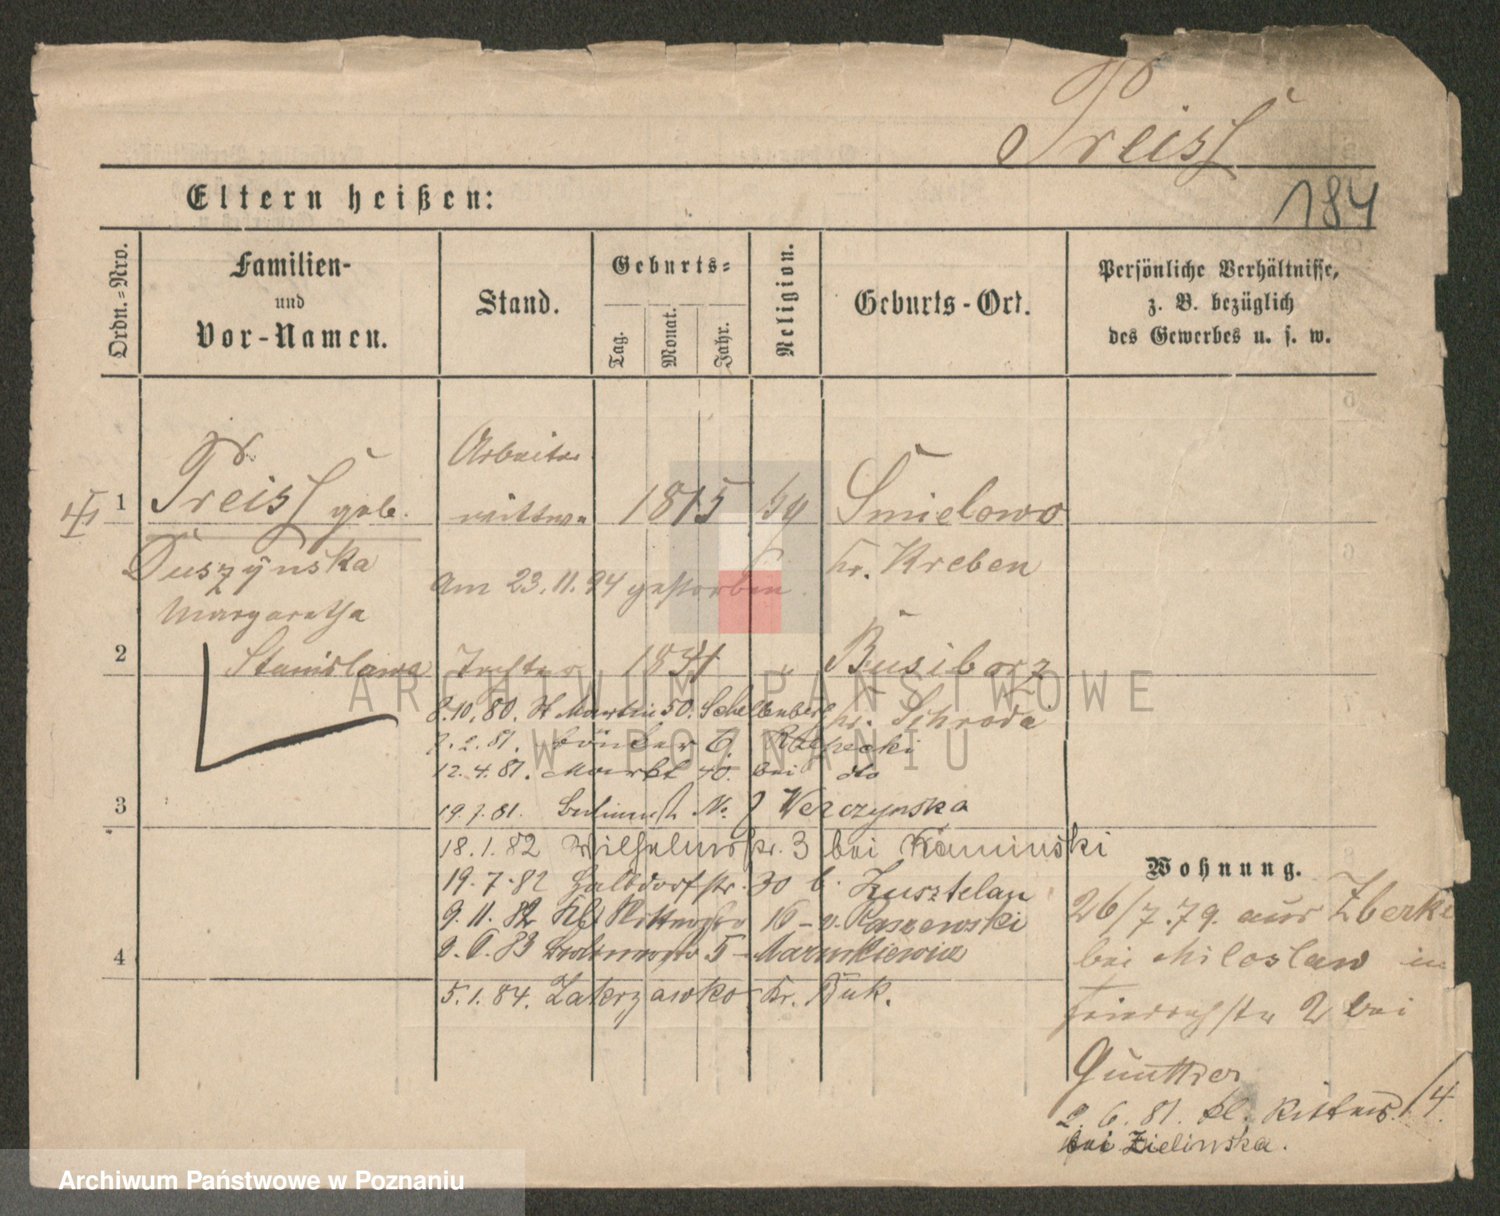 Preiss
184
Eltern heißen:
Ordn.-Nro.
Familien-
und
Vor-Namen.
Stand.
Geburts-
Tag.
Monat.
Jahr.
Religion.
Geburts-Ort.
Persönliche Verhältnisse,
z. B. bezüglich
des Gewerbes u. s. w.
1 Preiss geb. Arbeiter 1815 Smielowo
Duszÿnska wittwe Kr. Kreben
Margaretha am 23.11.94 gestorben
2 Stanislawa Tochter 1851 Busiborz
8.10.80. St Martin 50. Schellenberg Kr. Schroda
2.2.81. 6.
12.4.81. Markt 40. bei dto
3 19.7.81. No. Werczynska
18.1.82 Wilhelmstr. 3 bei Kaminski
19.7.82 Halbdorfstr. 30 b.
9.11.82 Kl. 16 - v. Raszewski
4 5 - Marunkiewicz
5.1.84. Zakrzewko Kr. Buk.
Wohnung.
26/7.79. aus Zberki
bei Miloslaw in
Friedrichstr 2 bei
Günther
2.6.81. kl. Ritters. 14.
bei Zielinska.
ARCHIWUM PAŃSTWOWE
W POZNANIU
Archiwum Państwowe w Poznaniu